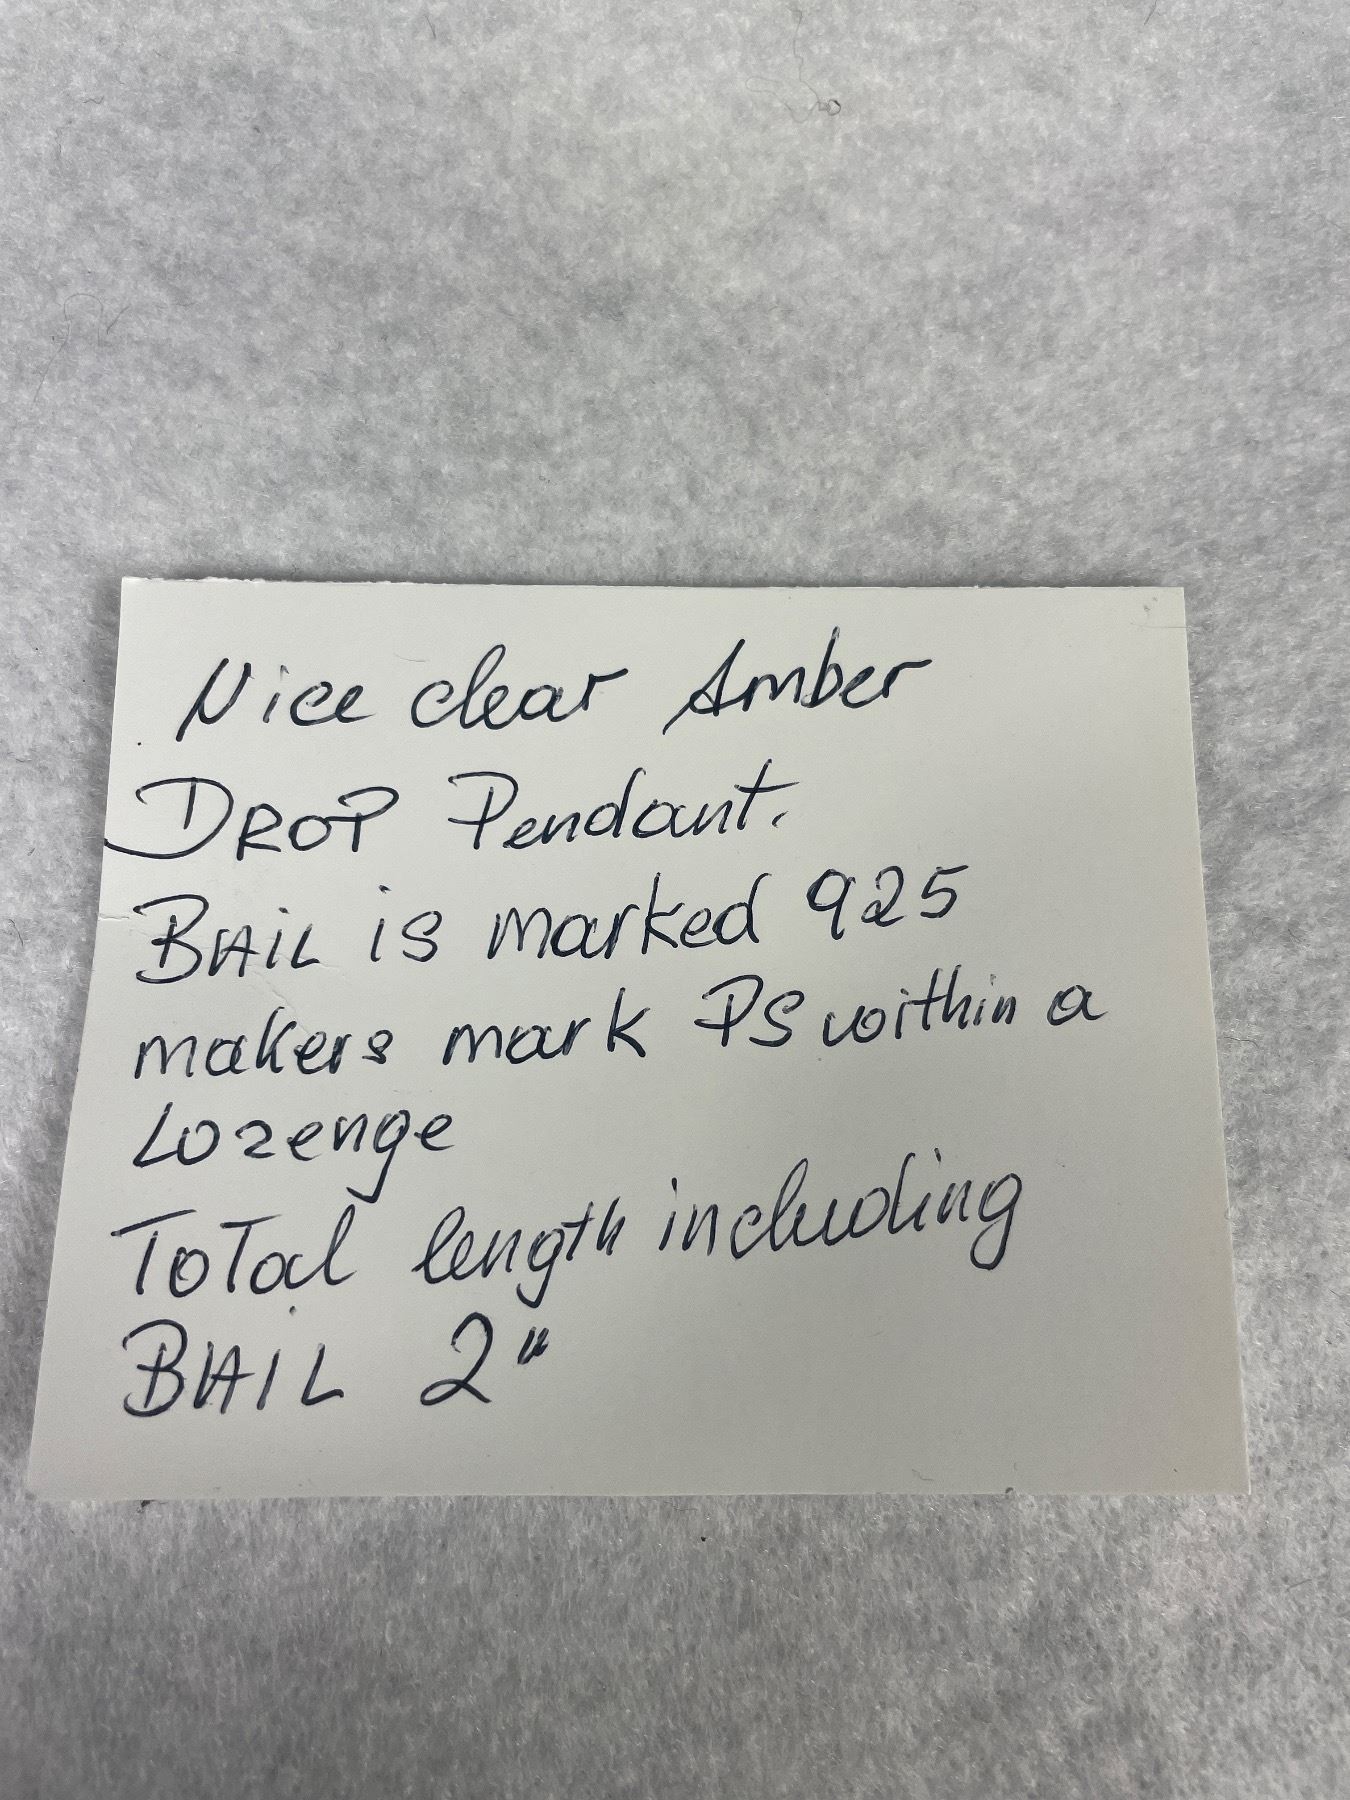 Nice clear Amber
DROP Pendant.
BAIL is marked 925
makers mark PS within a
Lozenge
ToTal length including
BAIL 2"